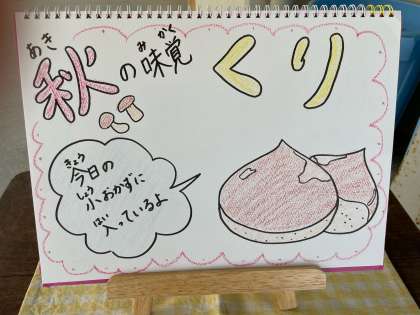 あき　み　かく
秋の味覚　くり
きょう
今日の
しょう
小おかずに
はい
入っているよ